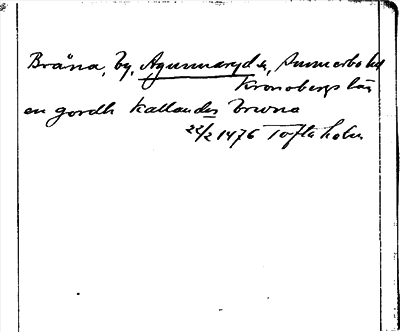 Bråna, by, Agunnaryd s, Sunnerbo hd
Kronobergs län
en gordh kallandes Brwna
22/2 1476 Tofta